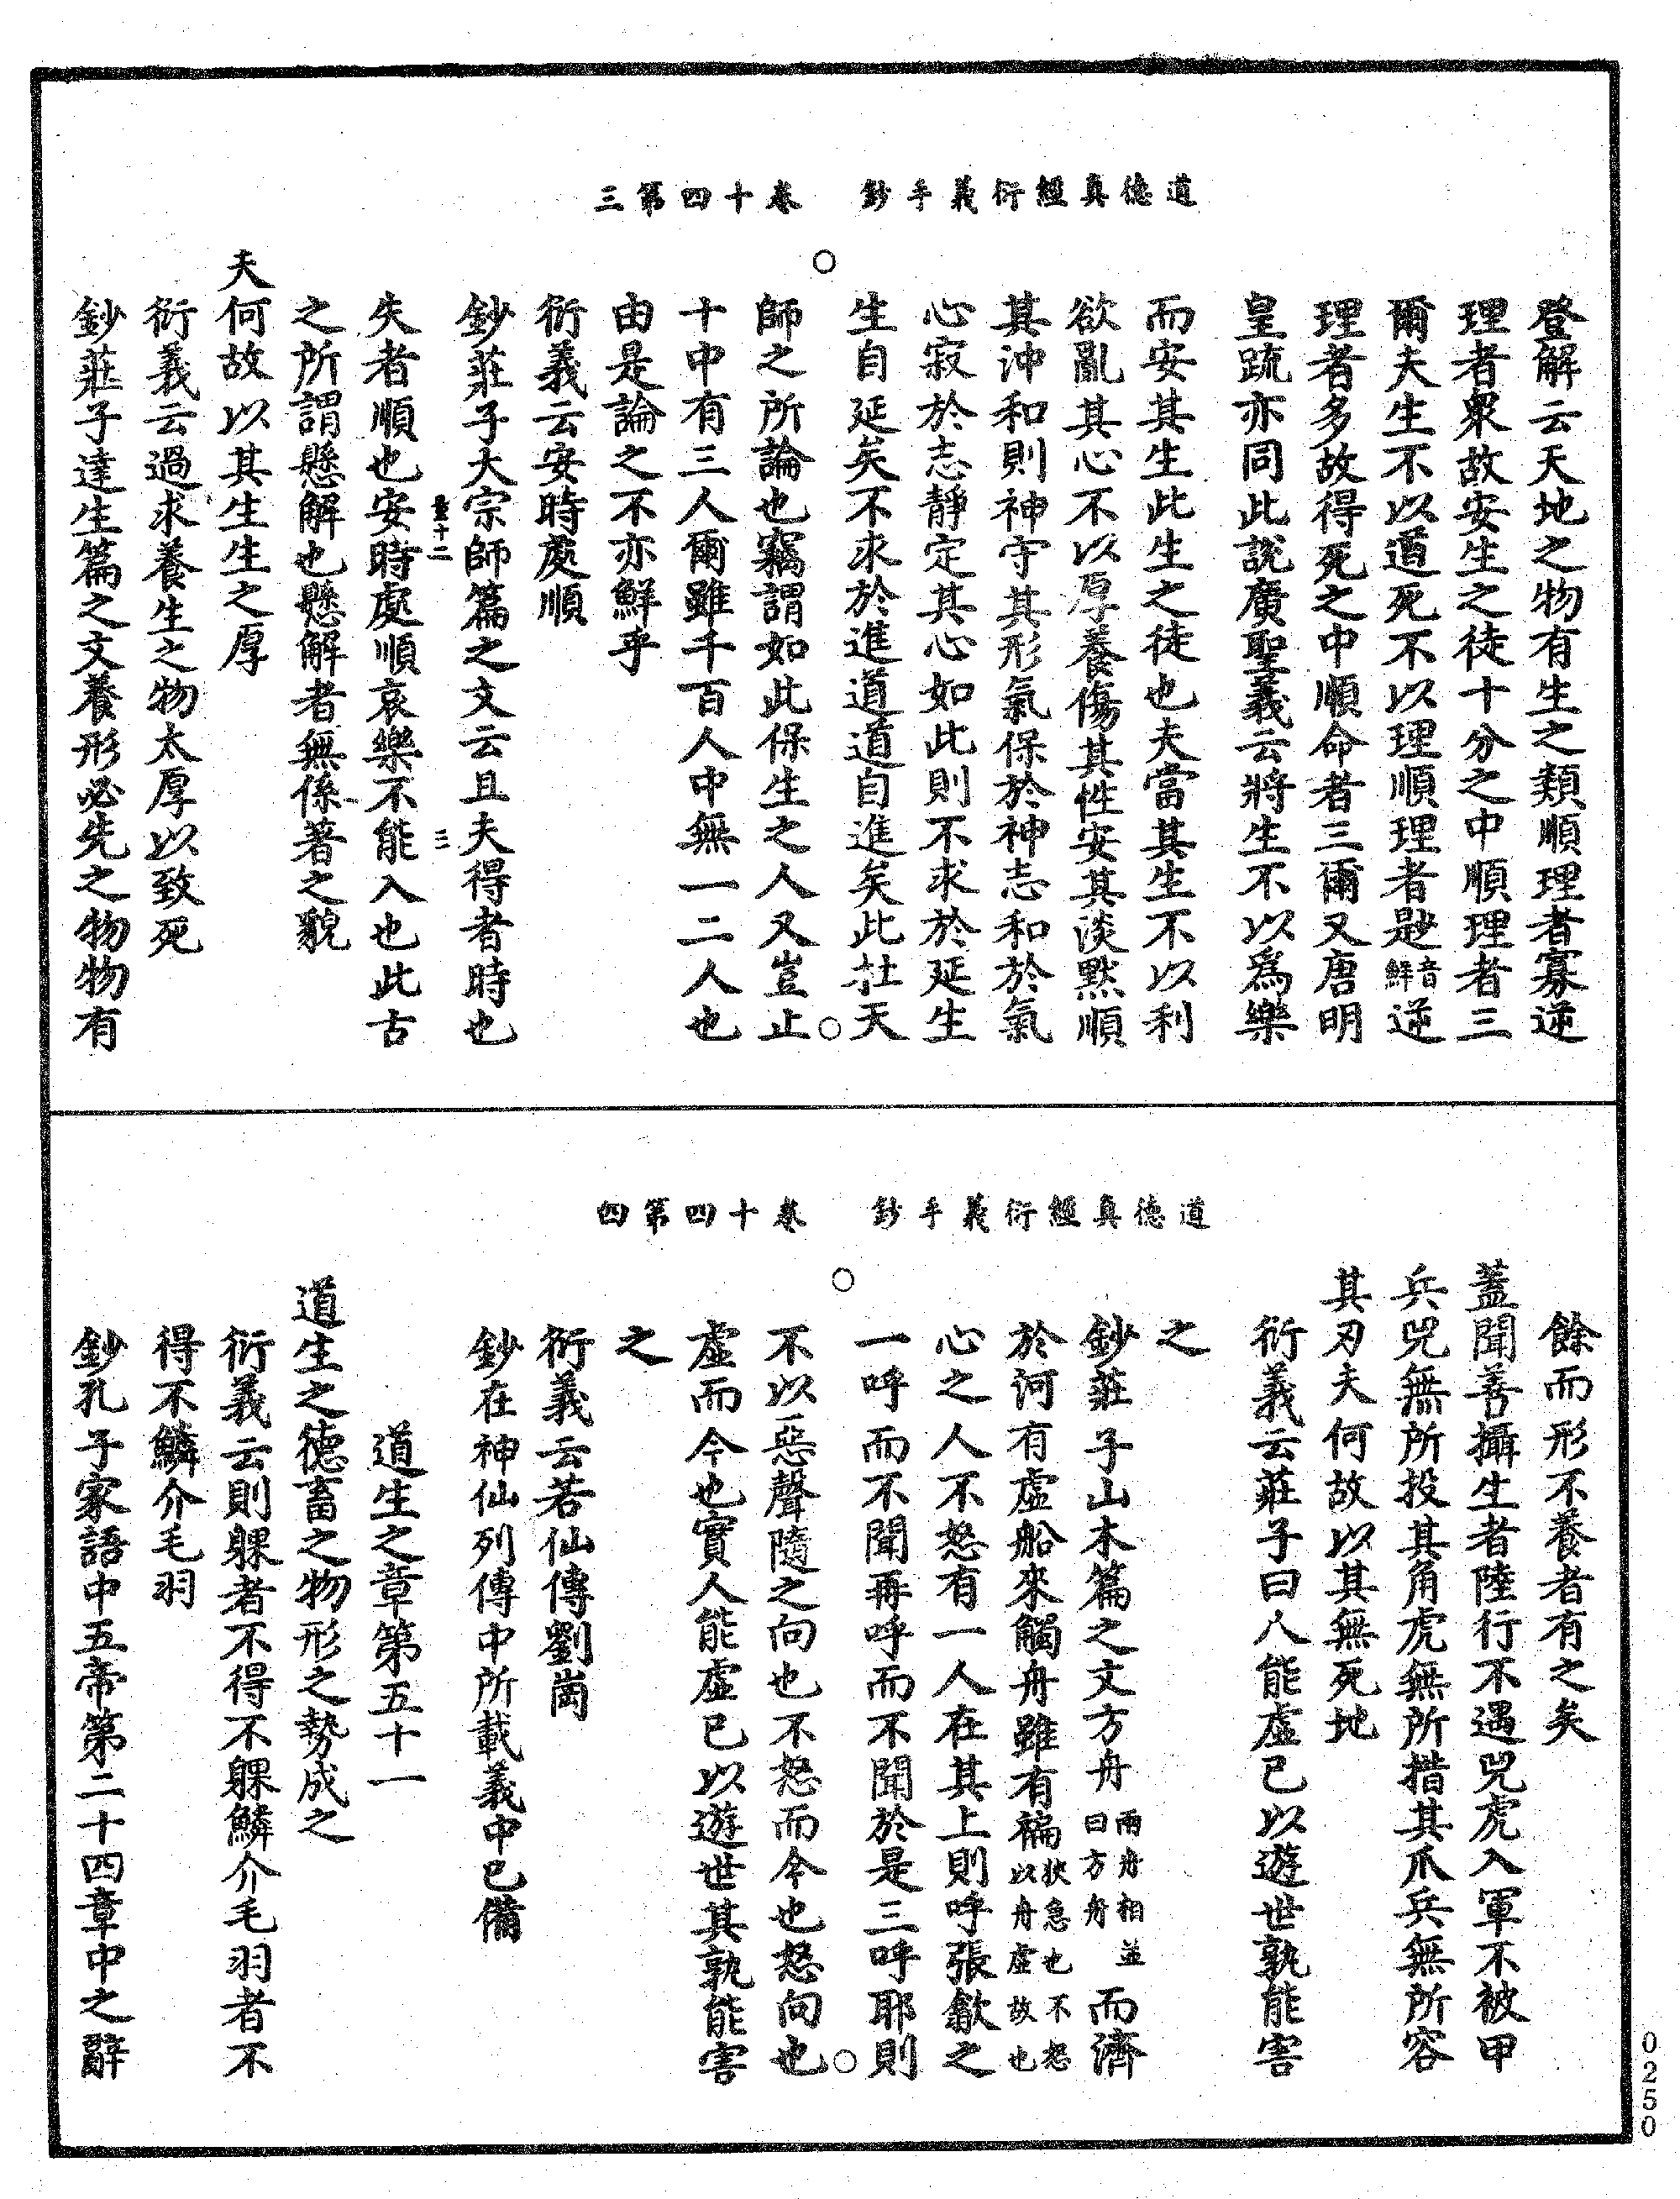 道德真經衍義手鈔　卷十四第三
登解云天地之物有生之類順理者寡逆
理者衆故安生之徒十分之中順理者三
爾夫生不以道死不以理順理者尟音鮮逆
理者多故得死之中順命者三爾又唐明
皇䟽亦同此說廣聖義云將生不以爲樂
而安其生此生之徒也夫當其生不以利
欲亂其心不以厚養傷其性安其淡默順
其沖和則神守其形氣保於神志和於氣
心寂於志靜定其心如此則不求於延生
生自延矣不求於進道道自進矣此杜天
師之所論也竊謂如此保生之人又豈止
十中有三人爾雖千百人中無一二人也
由是論之不亦鮮乎
衍義云安時處順
鈔莊子大宗師篇之文云且夫得者時也
十二　三
失者順也安時處順哀樂不能入也此古
之所謂懸解也懸解者無係著之貌
夫何故以其生生之厚
衍義云過求養生之物太厚以致死
鈔莊子達生篇之文養形必先之物物有
道德真經衍義手鈔　卷十四第四
餘而形不養者有之矣
蓋聞善攝生者陸行不遇兕虎入軍不被甲
兵兕無所投其角虎無所措其爪兵無所容
其刃夫何故以其無死地
衍義云莊子曰人能虛己以遊世孰能害
之
鈔莊子山木篇之文方舟兩舟相並曰方舟而濟
於河有虛船來觸舟雖有褊狹急也不怒以舟虛故也
心之人不怒有一人在其上則呼張歙之
一呼而不聞再呼而不聞於是三呼耶則
不以惡聲隨之向也不怒而今也怒向也
虛而今也實人能虛己以遊世其孰能害
之
衍義云若仙傳劉崗
鈔在神仙列傳中所載義中已備
道生之章第五十一
道生之德畜之物形之勢成之
衍義云則躶者不得不躶鱗介毛羽者不
得不鱗介毛羽
鈔孔子家語中五帝第二十四章中之辭
0250